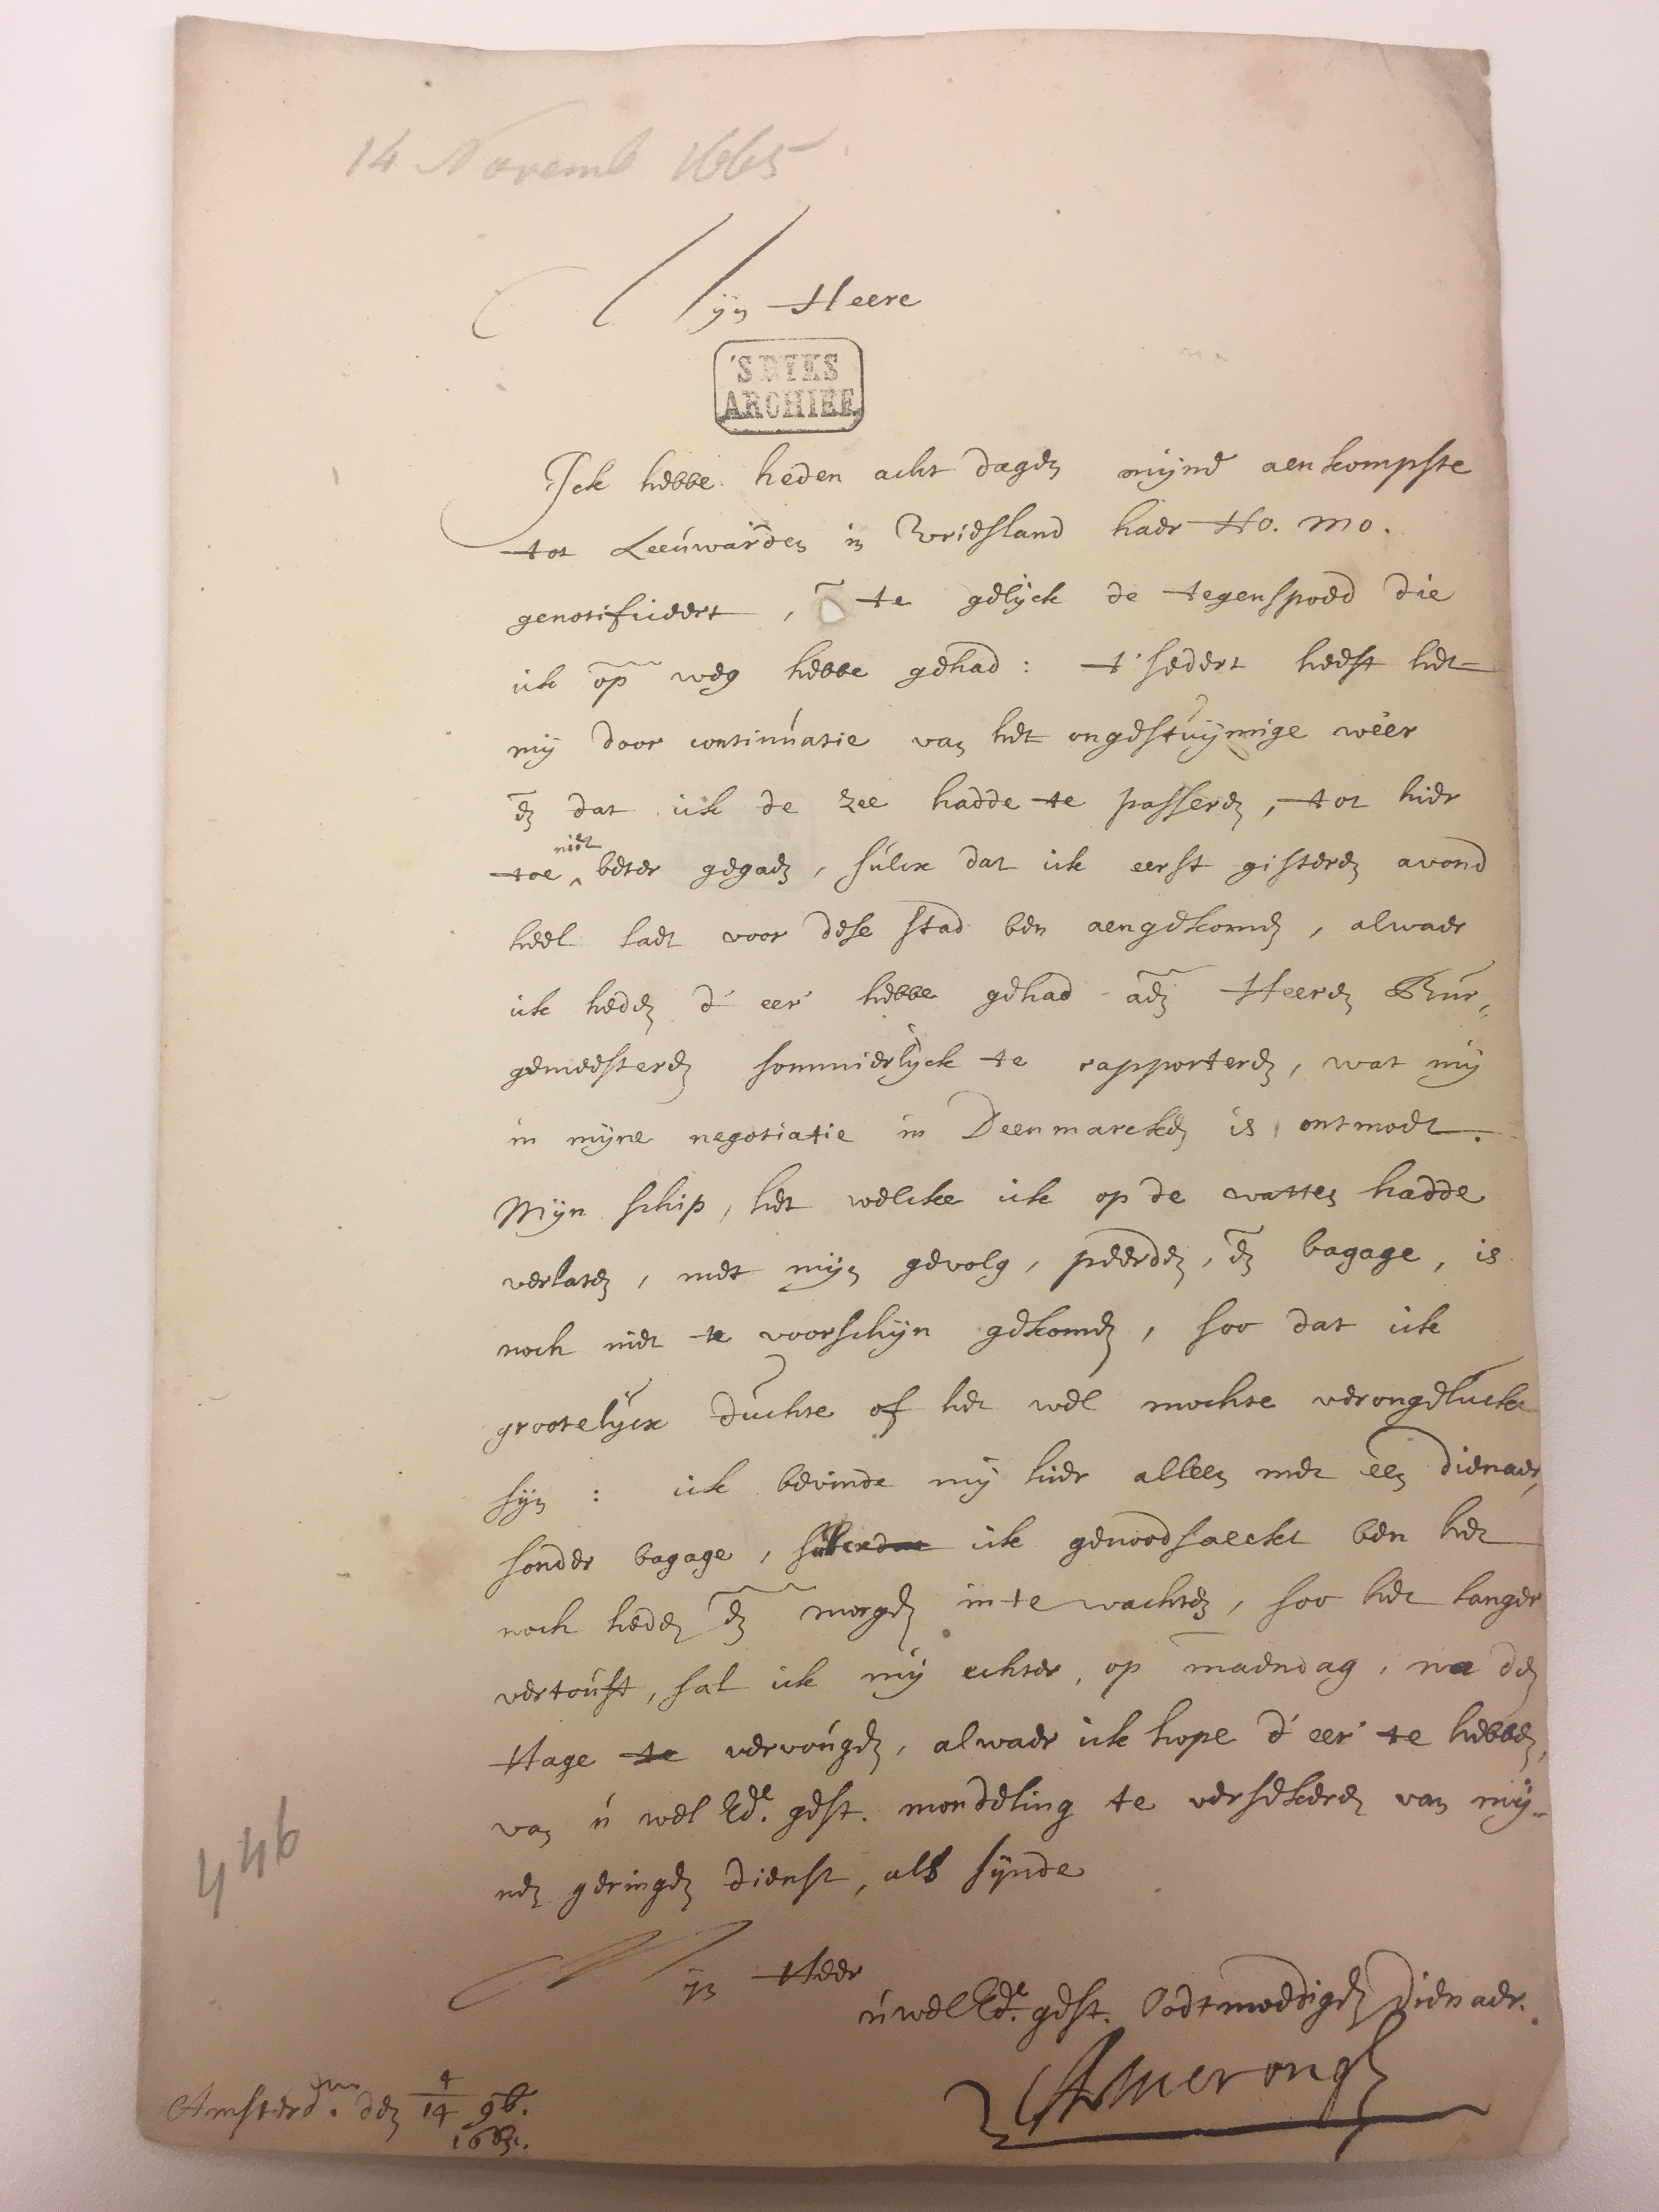 14 Novemb 1665
Mijn Heere
'S RYKS
ARCHIEF
Ick hebbe heden acht dagen mijne aenkompste
tot Leeuwarden in Vriesland haer Ho. Mo.
genotificeert, en te gelijck de tegenspoed die
ick op weg hebbe gehad: t'sedert heeft het
mij door continuatie van het ongestuijmige weer
en dat ick de zee hadde te passeren, tot hier
toe niet beter gegaen, sulcx dat ick eerst gisteren avond
heel laet voor dese stad ben aengekomen, alwaer
ick heden d'eer hebbe gehad aen Heeren Bur-
gemeesteren sommierlijck te rapporteren, wat mij
in mijne negotiatie in Deenmarcken is ontmoet.
Mijn schip, het welcke ick op de watten hadde
verlaten, met mijn gevolg, peerden, en bagage, is
noch niet te voorschijn gekomen, soo dat ick
grootelijcx duchte of het wel mochte verongeluckt
sijn: ick bevinde mij hier alleen met een dienaer,
sonder bagage, ick genoodsaeckt ben het
noch heden en morgen in te wachten, soo het langer
vertouft, sal ick mij echter, op maendag, na den
Hage te vervougen, alwaer ick hope d'eer te hebben,
van u wel Ede. gest. mondeling te versekeren van mij-
nen geringen dienst, als sijnde
Mijn Heer
u wel Ede. gest. Oodtmoedigen Dienaer.
Amerongen
Amsterdm. den 4/14 9b.
1665.
446